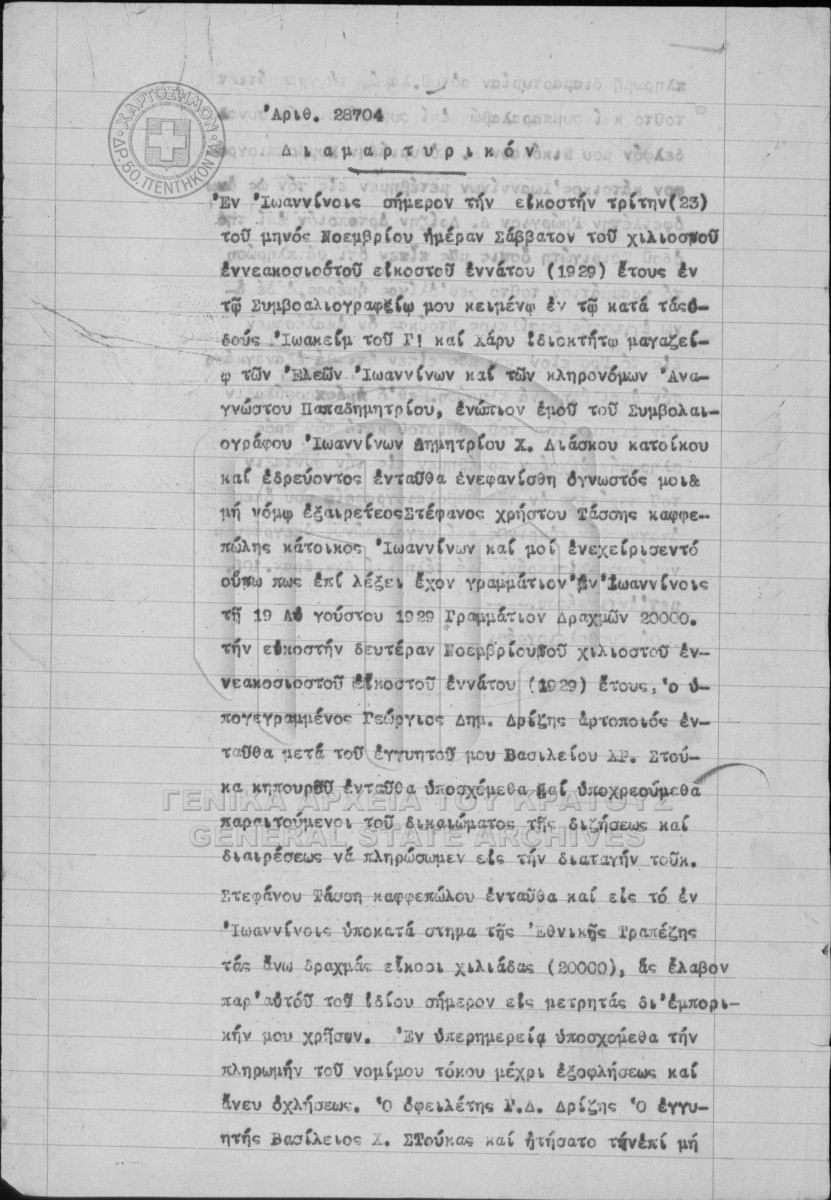 ΧΑΡΤΟΣΗΜΟΝ
ΔΡ. 50. ΠΕΝΤΗΚΟΝ
Ἀριθ. 28704
Διαμαρτυρικόν
Ἐν Ἰωαννίνοις σήμερον τήν εἰκοστήν τρίτην(23)
τοῦ μηνός Νοεμβρίου ἡμέραν Σάββατον τοῦ χιλιοσποῦ
ἐννεακοσιοστοῦ εἰκοστοῦ ἐννάτου (1929) ἔτους ἐν
τῷ Συμβοαλιογραφείῳ μου κειμένῳ ἐν τῷ κατά τάςὁ-
δούς Ἰωακείμ τοῦ Γ! καί Χάρυ ἰδιοκτήτῳ μαγαζεί-
ῳ τῶν Ἐλεῶν Ἰωαννίνων καί τῶν κληρονόμων Ἀνα-
γνώστου Παπαδημητρίου, ἐνώπιον ἐμοῦ τοῦ Συμβολαι-
ογράφου Ἰωαννίνων Δημητρίου Χ. Λιάσκου κατοίκου
καί ἑδρεύοντος ἐνταῦθα ἐνεφανίσθη ὁγνωστός μοι&
μή νόμῳ ἐξαιρετεοςΣτέφανος χρήστου Τάσσης καφφε-
πώλης κάτοικος Ἰωαννίνων καί μοί ἐνεχείρισεντό
οὕπω πως ἐπί λέξει ἔχον γραμμάτιον Ἐν Ἰωαννίνοις
τῇ 19 Αὐ γούστου 1929 Γραμμάτιον Δραχμῶν 20000.
τήν εἰκοστήν δευτέραν Νοεμβρίουτοῦ χιλιοστοῦ ἐν-
νεακοσιοστοῦ εἰκοστοῦ ἐννάτου (1929) ἔτους, ὁ ὑ-
πογεγραμμένος Γεώργιος Δημ. Δρίζης ἀρτοποιός ἐν-
ταῦθα μετά τοῦ ἐγγυητοῦ μου Βασιλείου ΧΡ. Στού-
κα κηπουροῦ ἐνταῦθα ὑποσχόμεθα καί ὑποχρεούμεθα
παραιτούμενοι τοῦ δικαιώματος τῆς διζήσεως καί
διαιρέσεως νά πληρώσωμεν εἰς τήν διαταγήν τοῦκ.
Στεφάνου Τάσση καφφεπώλου ἐνταῦθα καί εἰς τό ἐν
Ἰωαννίνοις ὑποκατά στημα τῆς Ἐθνικῆς Τραπέζης
τάς ἄνω δραχμάς εἴκοσι χιλιάδας (20000), ἅς ἔλαβον
παρ'αὐτοῦ τοῦ ἰδίου σήμερον εἰς μετρητάς δι'ἐμπορι-
κήν μου χρῆσιν. Ἐν ὑπερημερείᾳ ὑποσχόμεθα τήν
πληρωμήν τοῦ νομίμου τόκου μέχρι ἐξοφλήσεως καί
ἄνευ ὀχλήσεως. Ὁ ὀφειλέτης Γ.Δ. Δρίζης Ὁ ἐγγυ-
ητής Βασίλειος Χ. ΣΤούκας καί ᾐτήσατο τήνἐπί μή
ΓΕΝΙΚΑ ΑΡΧΕΙΑ ΤΟΥ ΚΡΑΤΟΥΣ
GENERAL STATE ARCHIVES